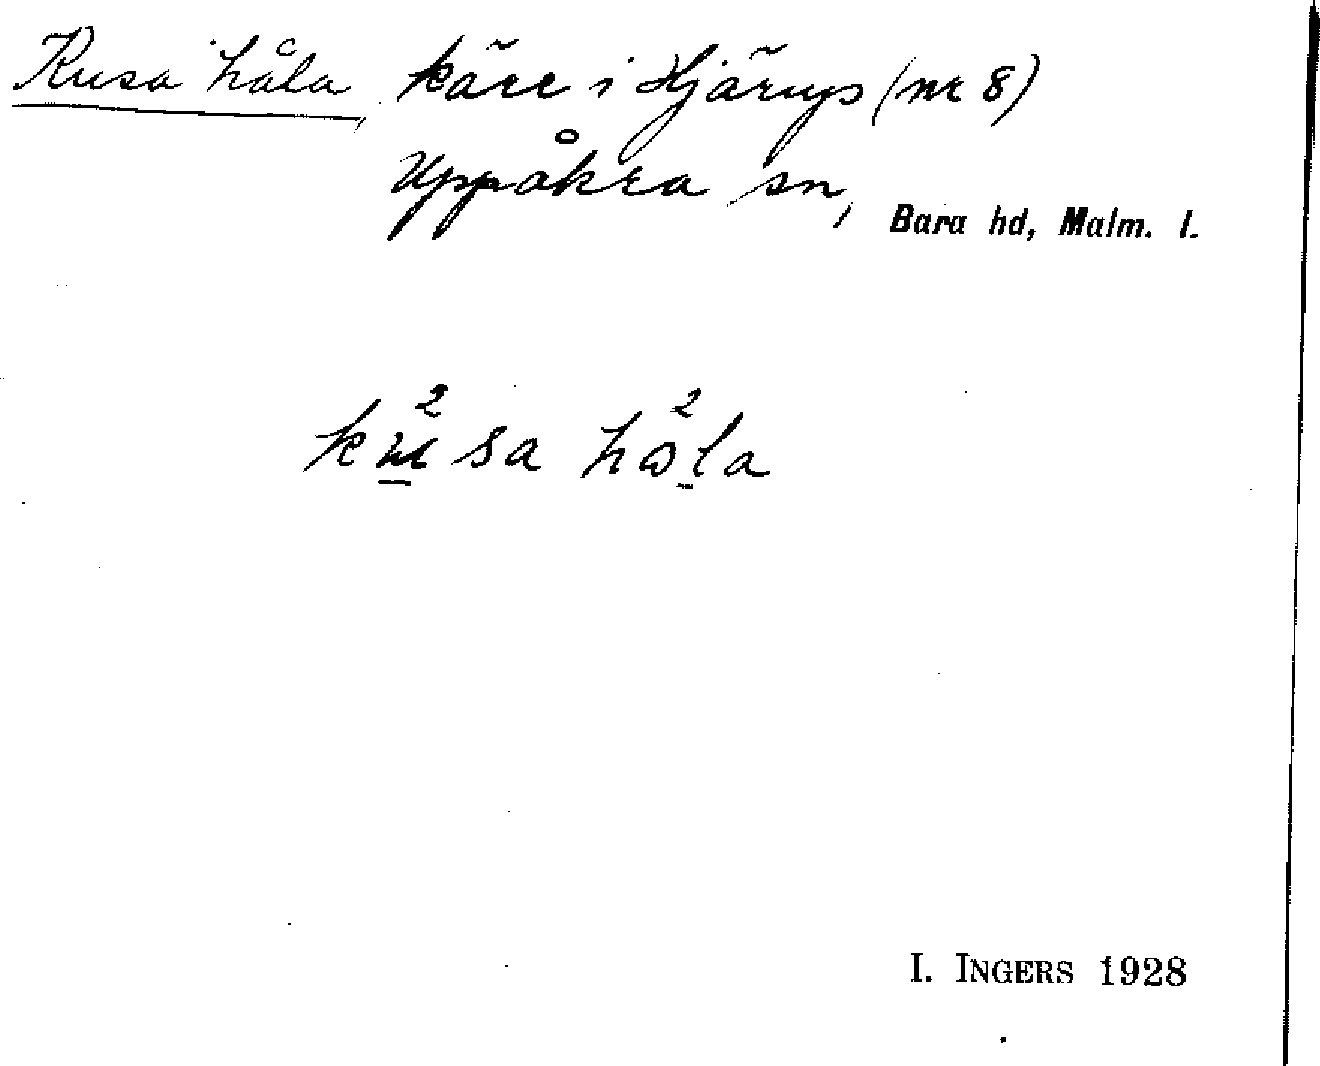 Kusa håla, kärr i Hjärups (nr 8)
Uppåkra sn, Bara hd, Malm. l.
ku²sa hω²la
I. INGERS 1928